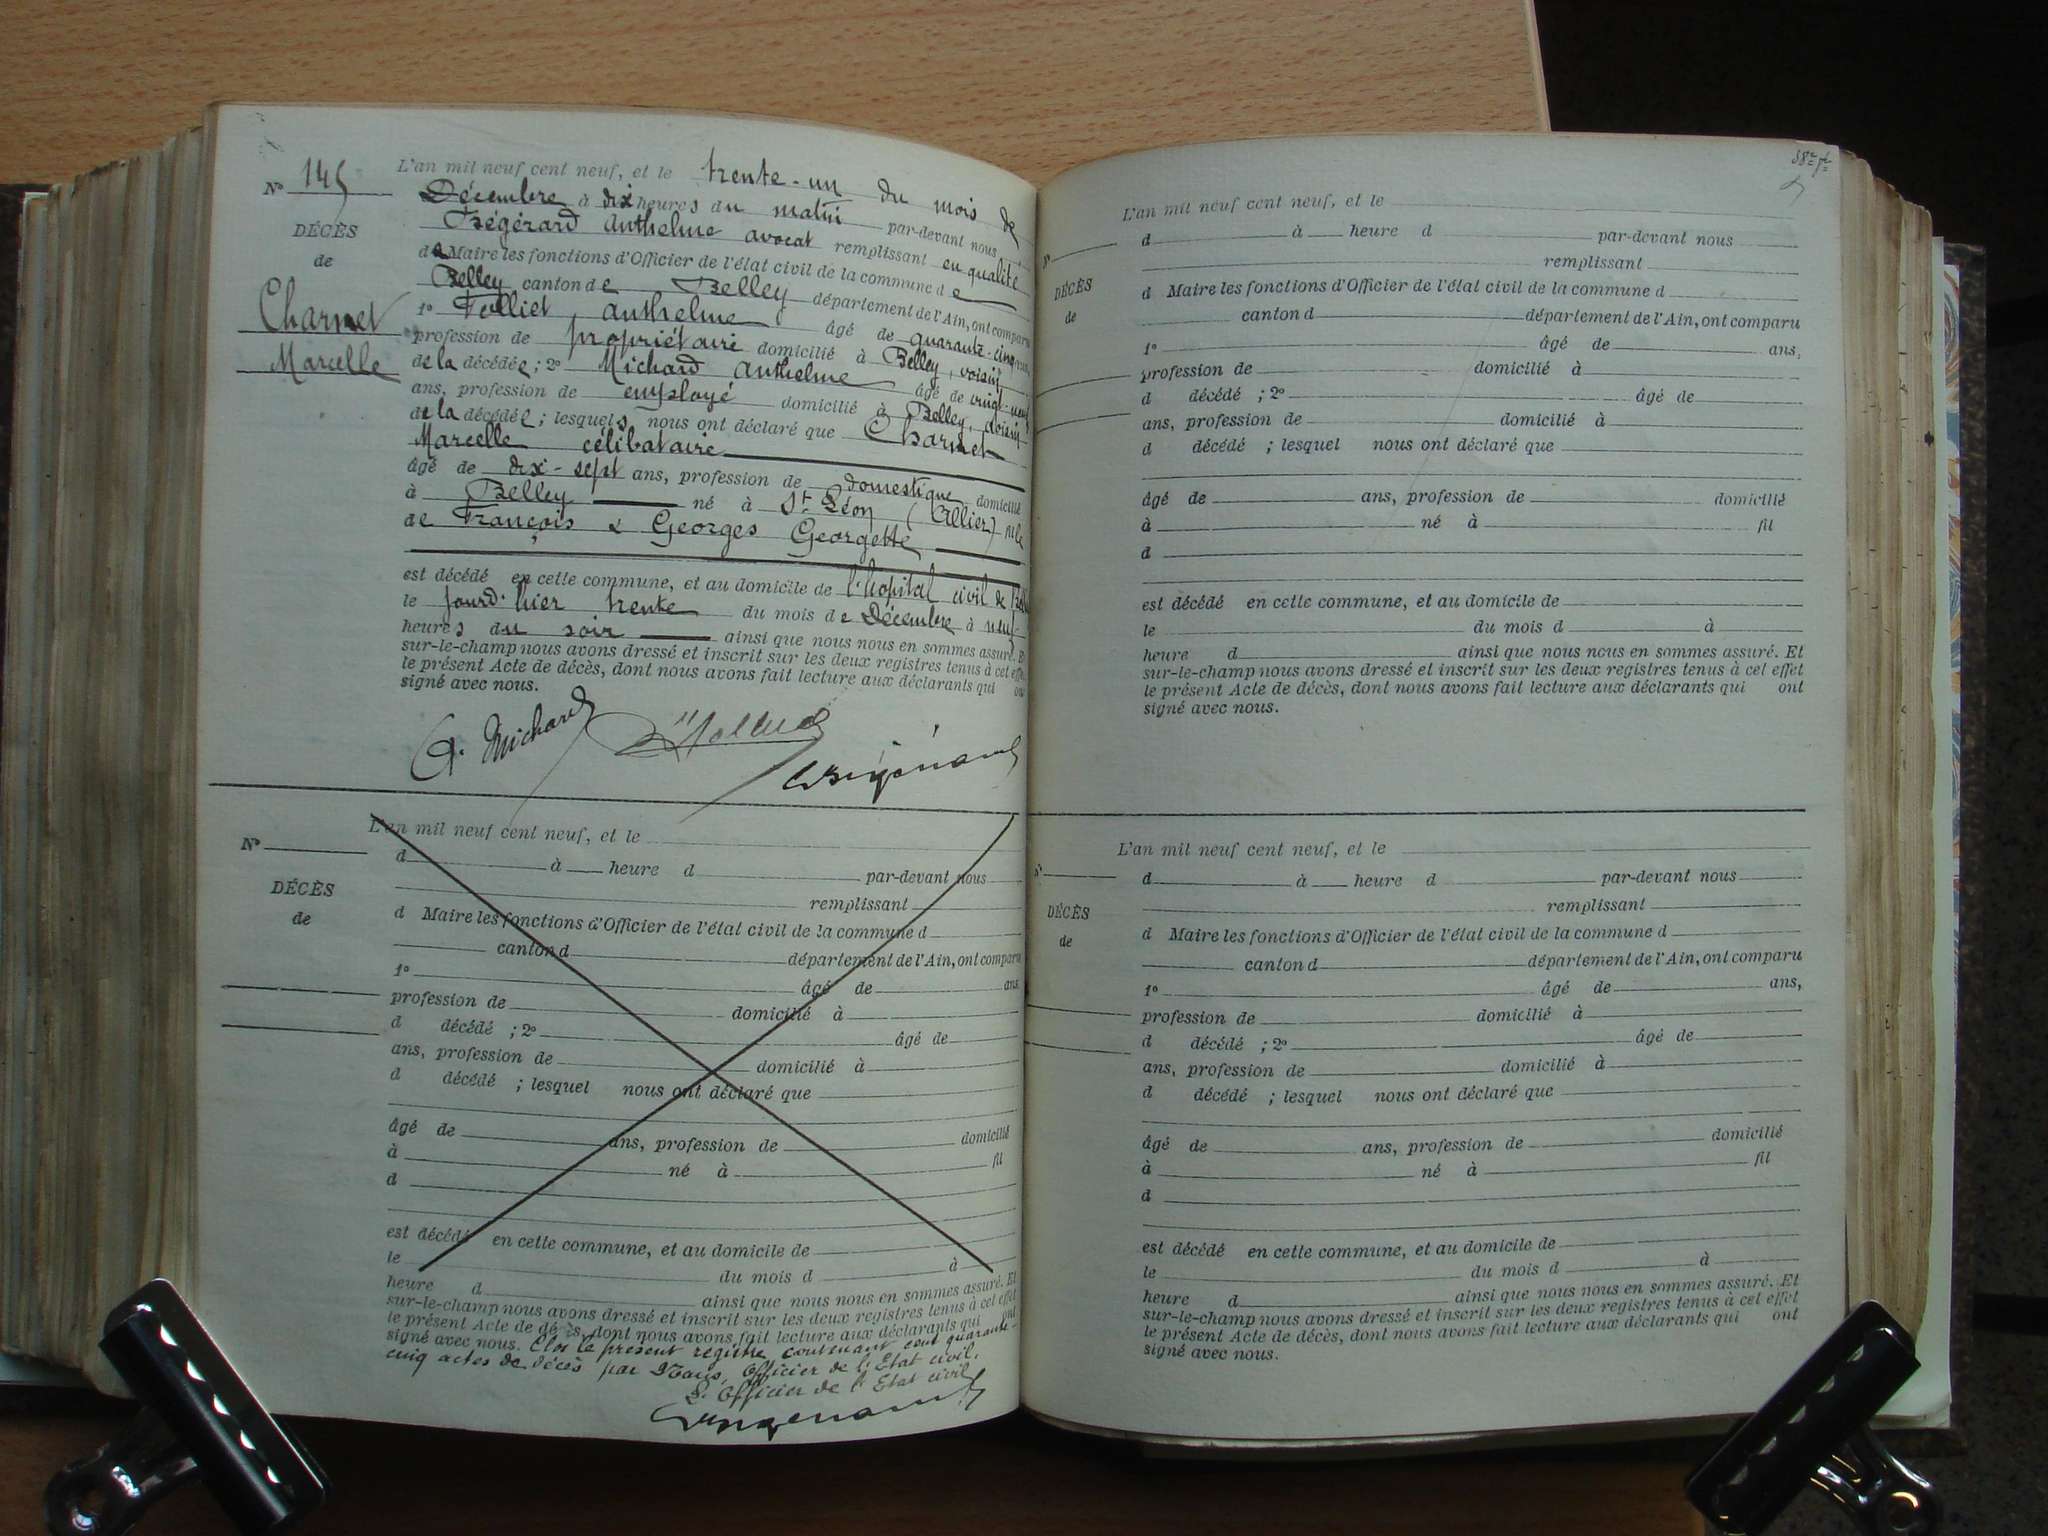 Nº 145
DÉCÈS
de
Charmet
Marcelle
L'an mil neuf cent neuf, et le trente-un du mois de
Décembre à dix heures du matin par-devant nous
anthelme avocat remplissant en qualité
de Maire les fonctions d'Officier de l'état civil de la commune de
Belley canton de Belley département de l'Ain, ont comparu
1º anthelme âgé de quarante-cinq ans,
profession de propriétaire domicilié à Belley, voisin
de la décédée; 2º Michard anthelme âgé de vingt-neuf
ans, profession de employé domicilié à Belley, voisin
de la décédée; lesquels nous ont déclaré que Charmet
Marcelle célibataire
âgé de dix-sept ans, profession de domestique domicilié
à Belley né à St Léon (Allier) fille
de François & Georges Georgette
est décédé en cette commune, et au domicile de l'hopital civil de
le jourd'hier trente du mois de Décembre à neuf
heures du soir ainsi que nous nous en sommes assuré. Et
sur-le-champ nous avons dressé et inscrit sur les deux registres tenus à cet effet
le présent Acte de décès, dont nous avons fait lecture aux déclarants qui ont
signé avec nous.
A. Michard
Nº
DÉCÈS
de
L'an mil neuf cent neuf, et le
d à heure d par-devant nous
remplissant
d Maire les fonctions d'Officier de l'état civil de la commune d
canton d département de l'Ain, ont comparu
1º âgé de ans,
profession de domicilié à
d décédé ; 2º âgé de
ans, profession de domicilié à
d décédé ; lesquel nous ont déclaré que
âgé de ans, profession de domicilié
à né à fil
d
est décédé en cette commune, et au domicile de
le du mois d à
heure d ainsi que nous nous en sommes assuré. Et
sur-le-champ nous avons dressé et inscrit sur les deux registres tenus à cet effet
le présent Acte de décès, dont nous avons fait lecture aux déclarants qui ont
signé avec nous. Clos le présent registre contenant cent quarante-
cinq actes de décès par Nous, Officier de l'Etat civil.
L'Officier de l'Etat civil
Nº
DÉCÈS
de
L'an mil neuf cent neuf, et le
d à heure d par-devant nous
remplissant
d Maire les fonctions d'Officier de l'état civil de la commune d
canton d département de l'Ain, ont comparu
1º âgé de ans,
profession de domicilié à
d décédé ; 2º âgé de
ans, profession de domicilié à
d décédé ; lesquel nous ont déclaré que
âgé de ans, profession de domicilié
à né à fil
d
est décédé en cette commune, et au domicile de
le du mois d à
heure d ainsi que nous nous en sommes assuré. Et
sur-le-champ nous avons dressé et inscrit sur les deux registres tenus à cet effet
le présent Acte de décès, dont nous avons fait lecture aux déclarants qui ont
signé avec nous.
Nº
DÉCÈS
de
L'an mil neuf cent neuf, et le
d à heure d par-devant nous
remplissant
d Maire les fonctions d'Officier de l'état civil de la commune d
canton d département de l'Ain, ont comparu
1º âgé de ans,
profession de domicilié à
d décédé ; 2º âgé de
ans, profession de domicilié à
d décédé ; lesquel nous ont déclaré que
âgé de ans, profession de domicilié
à né à fil
d
est décédé en cette commune, et au domicile de
le du mois d à
heure d ainsi que nous nous en sommes assuré. Et
sur-le-champ nous avons dressé et inscrit sur les deux registres tenus à cet effet
le présent Acte de décès, dont nous avons fait lecture aux déclarants qui ont
signé avec nous.